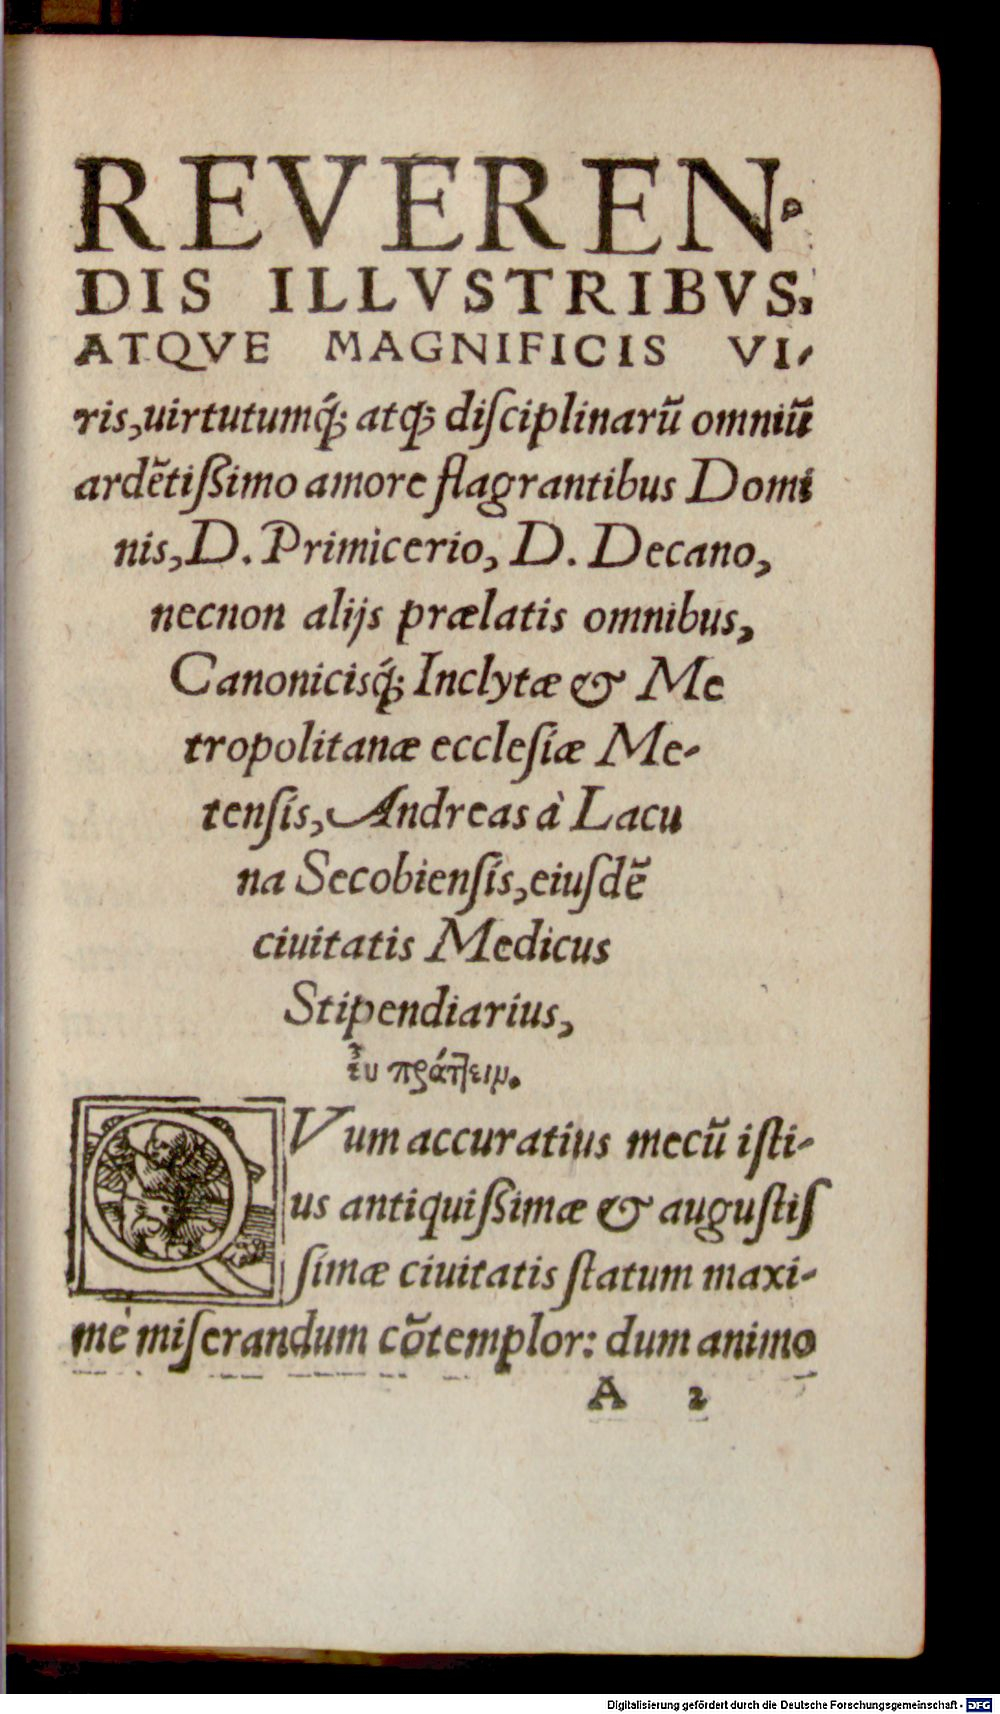 REVEREN-
DIS ILLVSTRIBVS,
ATQVE MAGNIFICIS VI-
ris,uirtutumq́; atq; diſciplinarũ omniũ
ardẽtiſsimo amore flagrantibus Domi
nis,D. Primicerio, D. Decano,
necnon alijs prælatis omnibus,
Canonicisq́; Inclytæ & Me
tropolitanæ eccleſiæ Me-
tenſis, Andreas à Lacu
na Secobienſis,eiuſdẽ
ciuitatis Medicus
Stipendiarius,
εὖ πράττειν.
QVum accuratius mecũ iſti-
us antiquiſsimæ & auguſtiſ
ſimæ ciuitatis ſtatum maxi-
mè miſerandum cõtemplor: dum animo
A 2
Digitalisierung gefördert durch die Deutsche Forschungsgemeinschaft - DFG